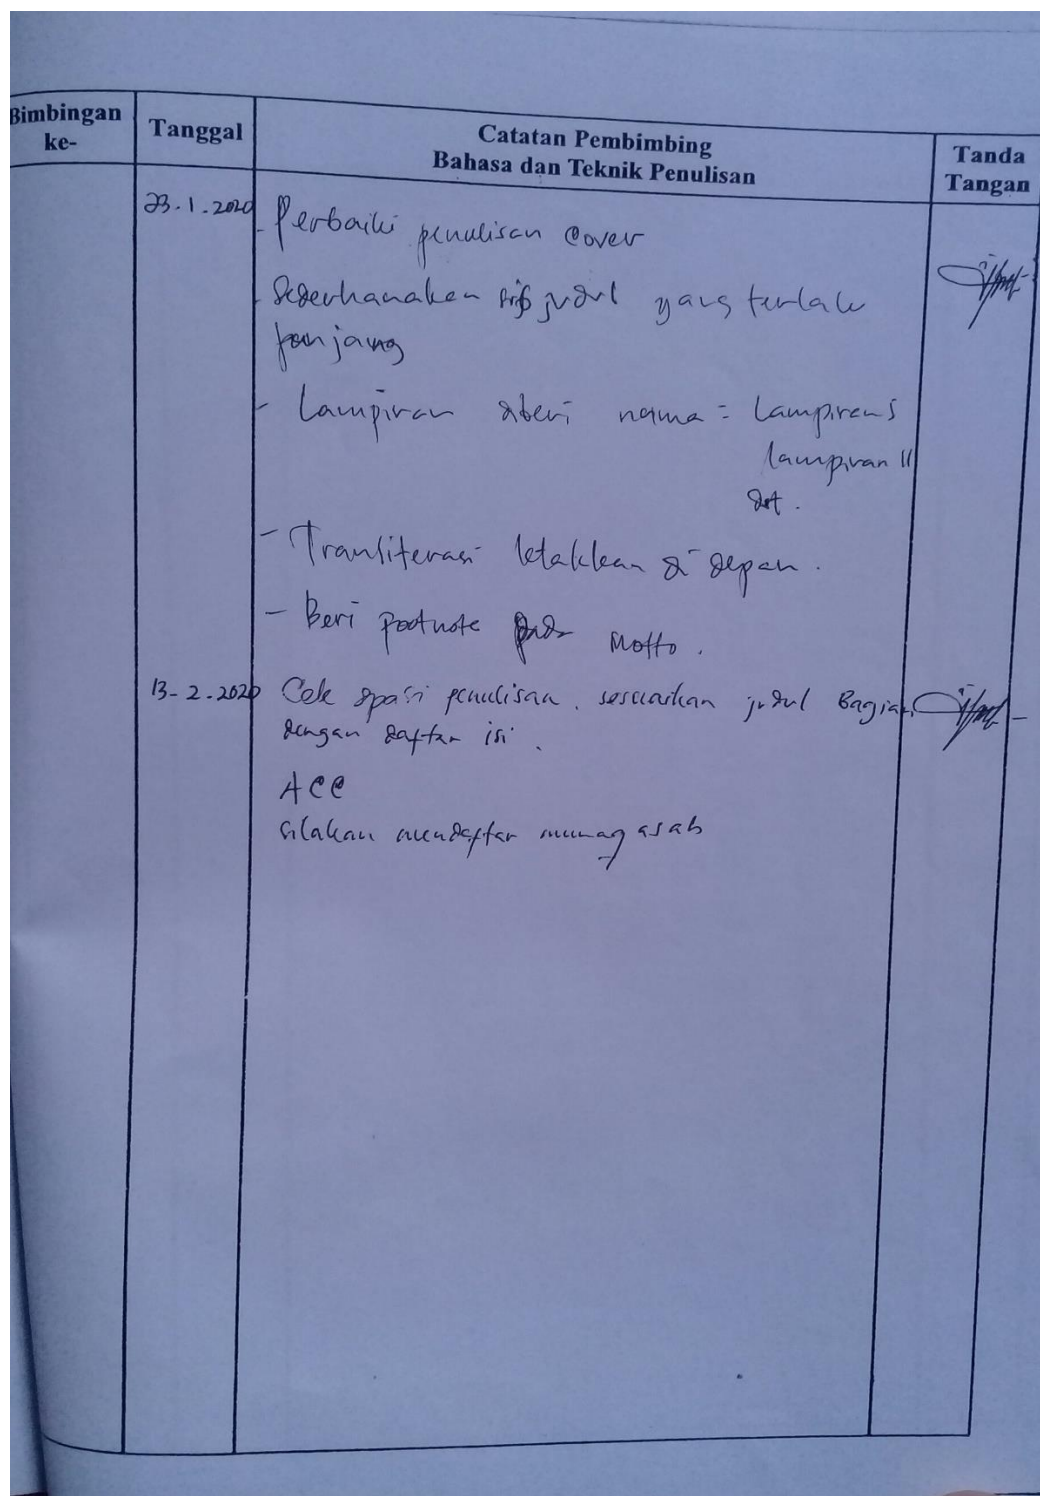 Bimbingan ke-
Tanggal
Catatan Pembimbing
Bahasa dan Teknik Penulisan
Tanda
Tangan
23.1.2020
- Perbaiki penulisan cover
- Sederhanakan sub judul yang terlalu
panjang
- Lampiran diberi nama = Lampiran I
lampiran II
dst.
- Transliterasi letakkan di depan.
- Beri footnote pada Motto.
13-2-2020 Cek spasi penulisan, sesuaikan judul Bagian
dengan daftar isi.
ACC
silakan mendaftar munaqasah